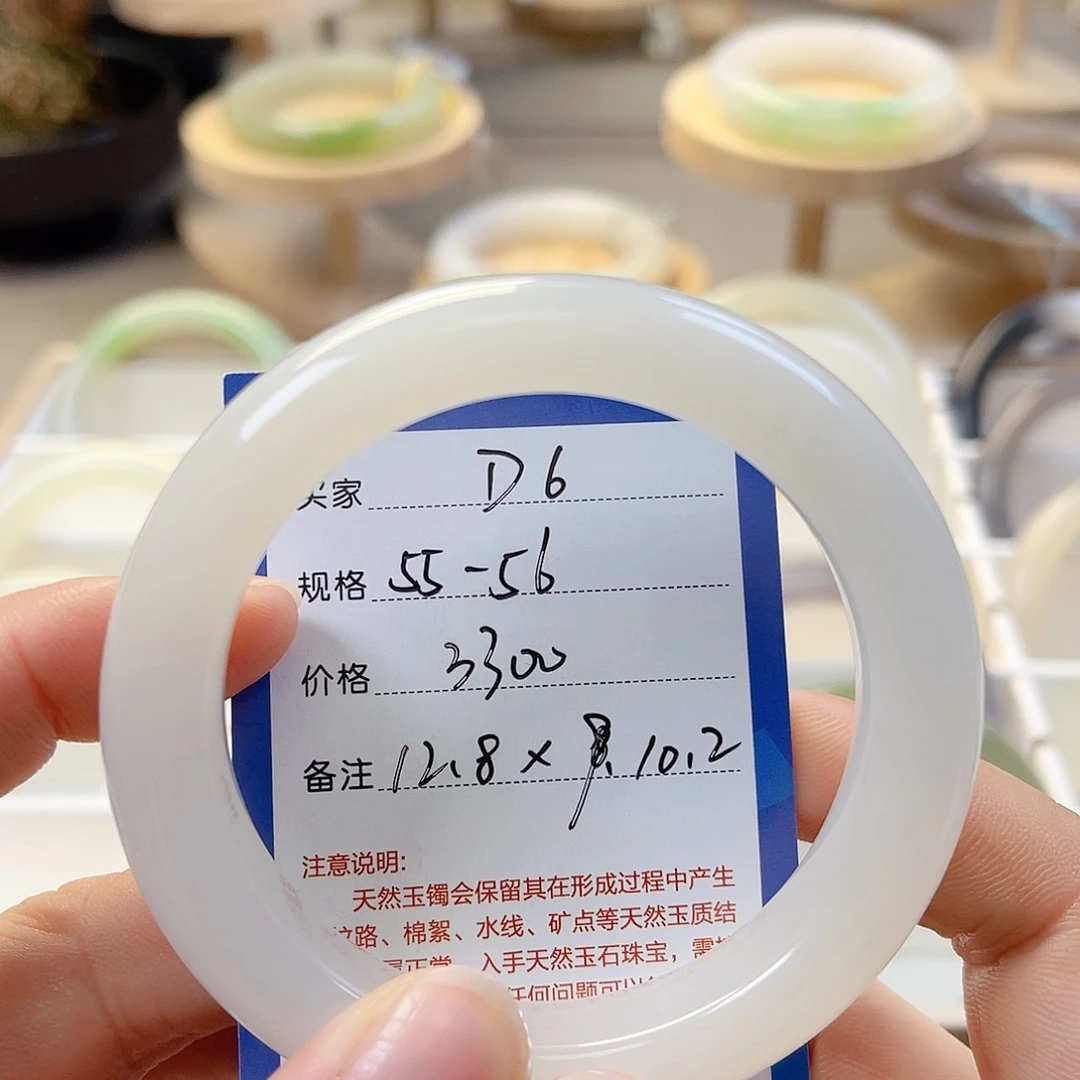 买家 D6
规格 55-56
价格 3300
备注 12.8 × 10.2
注意说明:
天然玉镯会保留其在形成过程中产生
纹路、棉絮、水线、矿点等天然玉质结
正常 入手天然玉石珠宝,需
任何问题可以